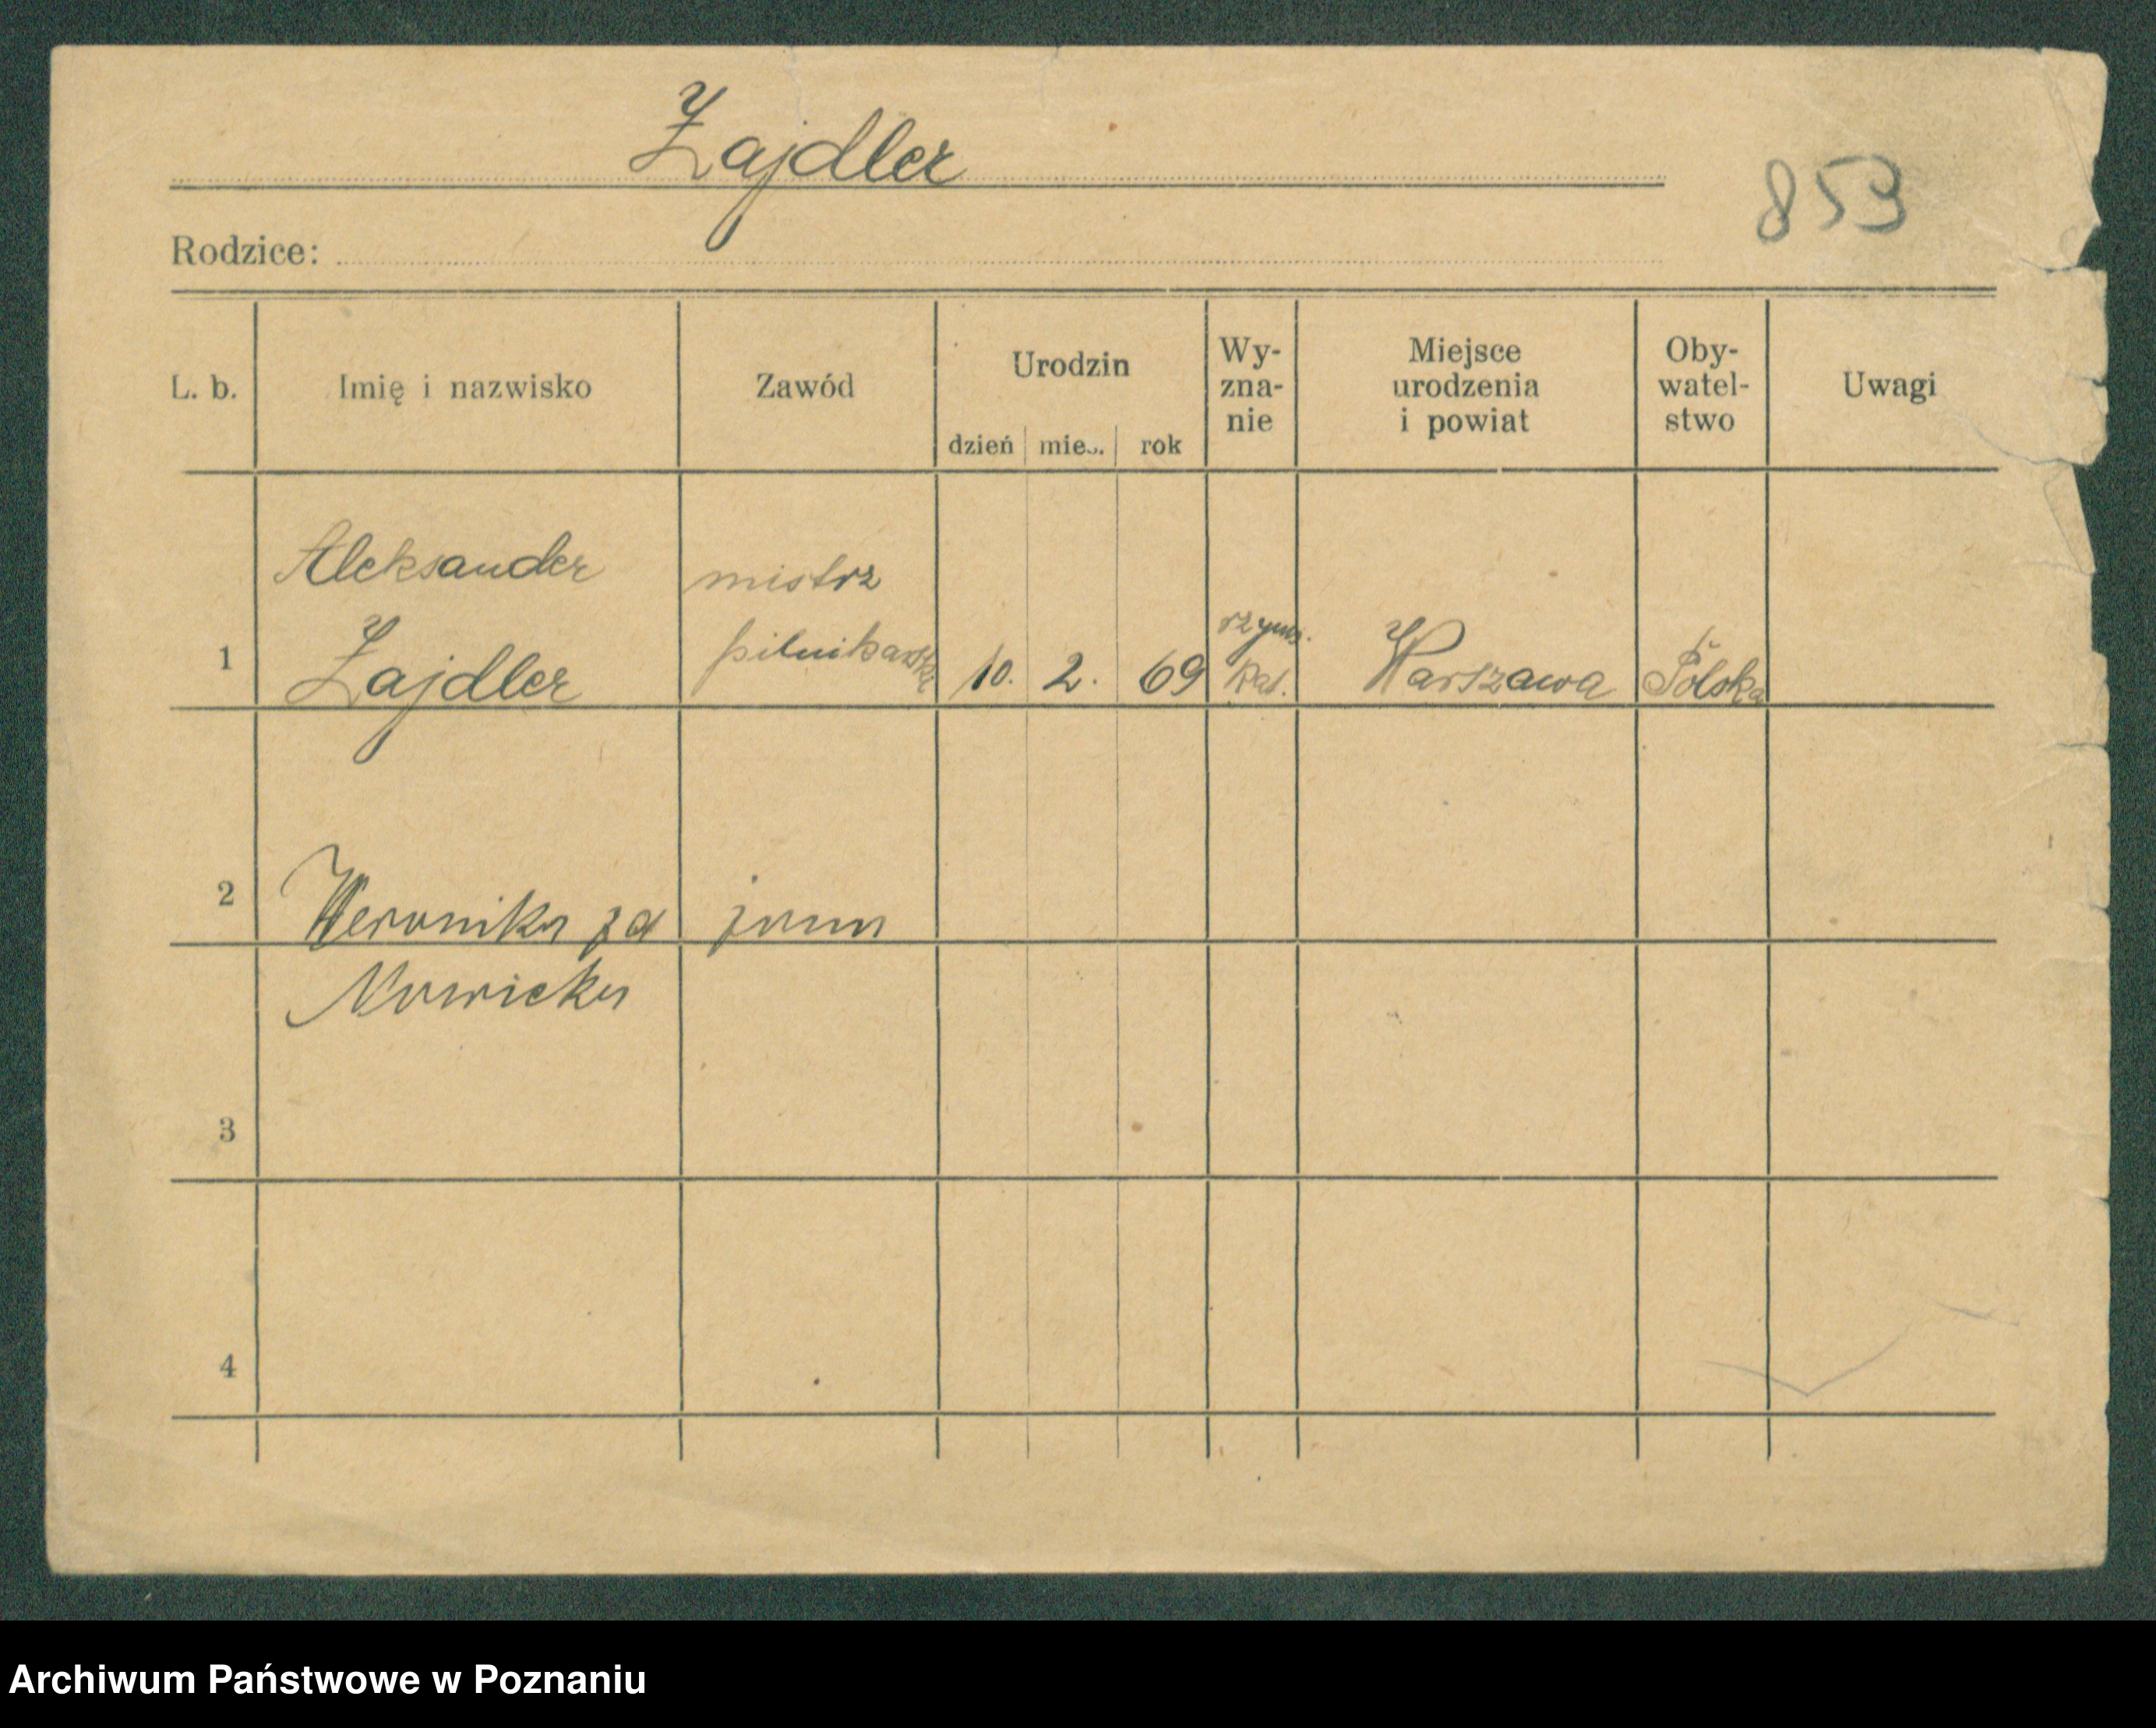 Zajdler
853
Rodzice:
L. b. Imię i nazwisko Zawód Urodzin dzień mies. rok Wy-zna-nie Miejsce urodzenia i powiat Oby-watel-stwo Uwagi
Aleksander mistrz
1 Zajdler pilnikarski 10. 2. 69 rzyms. kat. Warszawa Polska
2 Weronika zd żona
Nowicka
3
4
Archiwum Państwowe w Poznaniu